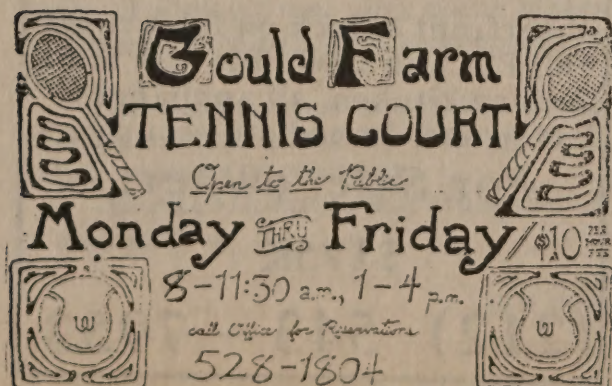 Gould Farm
TENNIS COURT
Open to the Public
Monday THRU Friday / $10 PER HOUR FEE
8-11:30 a.m., 1-4 p.m.
call Office for Reservations
528-1804
W W